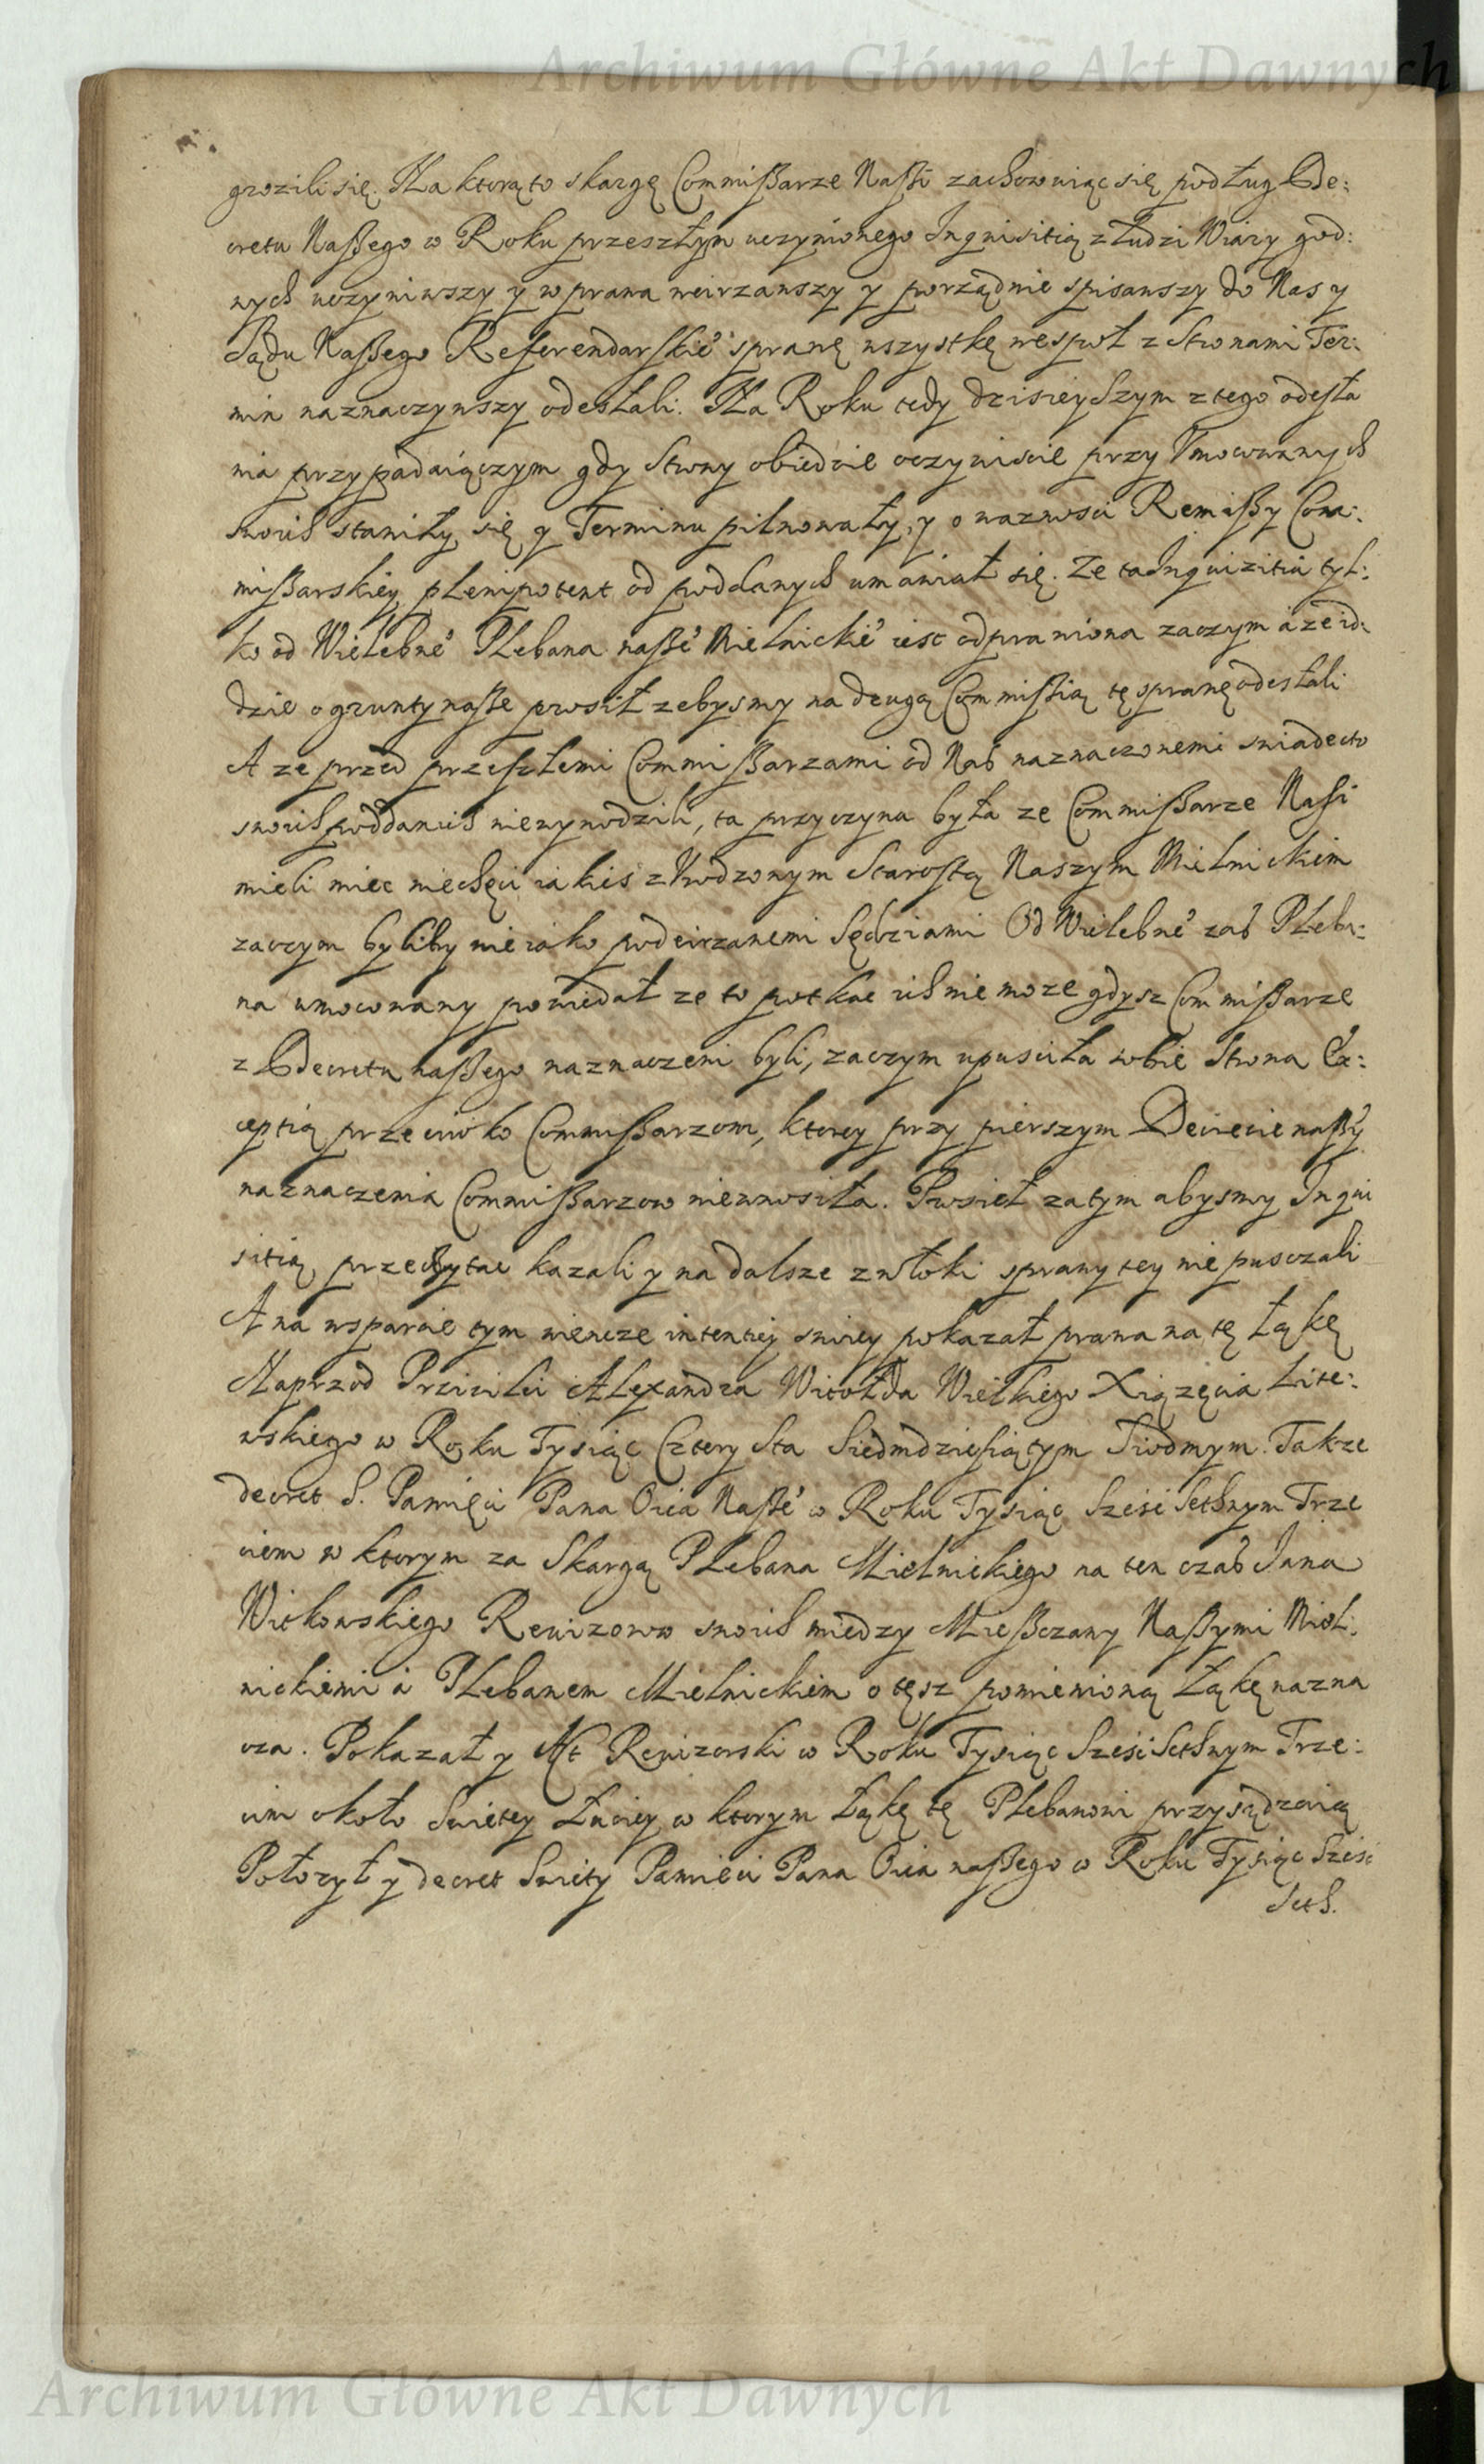 Archiwum Główne Akt Dawnych
grozili się. Na ktorąto skargę Commißarze Naßi zachowuiąc się podług De:
cretu Naßego w Roku przeszłym uczynionego Inquisitią z Łudzi Wiary god:
nych uczyniwszy y w prawa weirzawszy y porządnie spisawszy do Nas y
Sądu Naßego Referendarskie° sprawę wszystkę wespoł z Stronami Ter:
min naznaczywszy odesłali. Na Roku tedy dzisieyszym z tego odesła
nia przypadaiączym gdy Strony obiedwie oczywiscie przy Vmocwanych
swoich stawiły się y Terminu pilnowały, y o nazwosci Remißy Com:
mißarskiey plenipotent od poddanych umawiał się. Ze ta Inquizitia tyl:
ko od Wielebne° Plebana naße° Mielnickie° iest odprawiona zaczym a ze id:
dzie o grunty naße prosił zebysmy na drugą Commißią tę sprawę odesłali
A ze przed przeszłemi Commißarzami od Nas naznaczonemi swiadectw
swoich poddanich niewywodzili, ta przyczyna była ze Commißarze Naßi
mieli miec niechęci iakies z Vrodzonym Starostą Naszym Mielnickim
zaczym byliby nieiako podeirzanemi Sędziami Od Wielebne° zas Pleba:
na umocowany powiedał ze to potkac ich nie moze gdysz Commißarze
z Decretu naßego naznaczeni byli, zaczym upusciła sobie Strona Ex:
ceptią przeciwko Commißarzom, ktorey przy pierszym Decrecie naßy
naznaczenia Commißarzow niewnosiła. Prosieł zatym abysmy Inqui
sitią przeczytac kazali y na dalsze zwłoki sprawy tey nie pusczali
A na wsparcie tym wiencze intentiey swoiey pokazał prawa na tę Łąkę
Naprzod Przivilei Alexandra Witołda Wielkiego Xiązęcia Lite:
wskiego w Roku Tysiąc Cztery Sta Siedmdziesiątym Siodmym. Takze
decret S. Pamięci Pana Oica Naße° w Roku Tysiąc Szesc Sethnym Trze
ciem w ktorym za Skargą Plebana Mielnickiego na ten czas Jana
Witkowskiego Rewizorow swoich miedzy Mießczany Naßymi Miel:
nickiemi a Plebanem Mielnickiem o tęsz pomienioną Łąkę nazna
cza. Pokazał y Akt Rewizorski w Roku Tysiąc Szesc Sethnym Trze:
cim około Swietey Łuciey w ktorym Łąkę tę Plebanowi przysądzaią
Połozył y decret Swiety Pamieci Pana Oica naßego w Roku Tysiąc Szesc
Seth.
Archiwum Główne Akt Dawnych